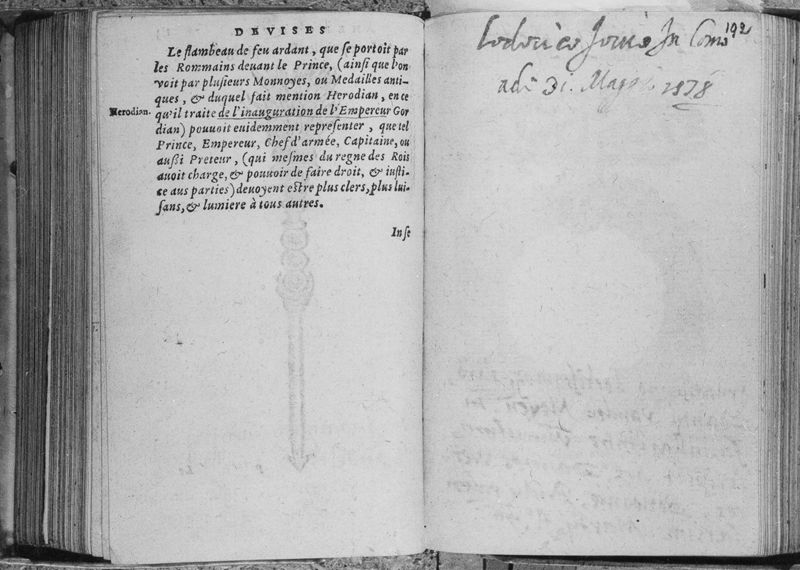 DEVISES
Le flambeau de feu ardant, que se portoit par
les Rommains deuant le Prince, (ainſi que l'on
voit par pluſieurs Monnoyes, ou Medailles anti-
ques, & duquel fait mention Herodian, en ce
Herodian. qu'il traite de l'inauguration de l'Empereur Gor
dian) pouuoit euidemment repreſenter, que tel
Prince, Empereur, Chef d'armée, Capitaine, ou
außi Preteur, (qui meſmes du regne des Rois
auoit charge, & pouuoir de faire droit, & iuſti-
ce aus parties) deuoyent eſtre plus clers, plus lui-
ſans, & lumiere à tous autres.
Inſe
192
Lodovico Jovio In Como
adi 31. 1578